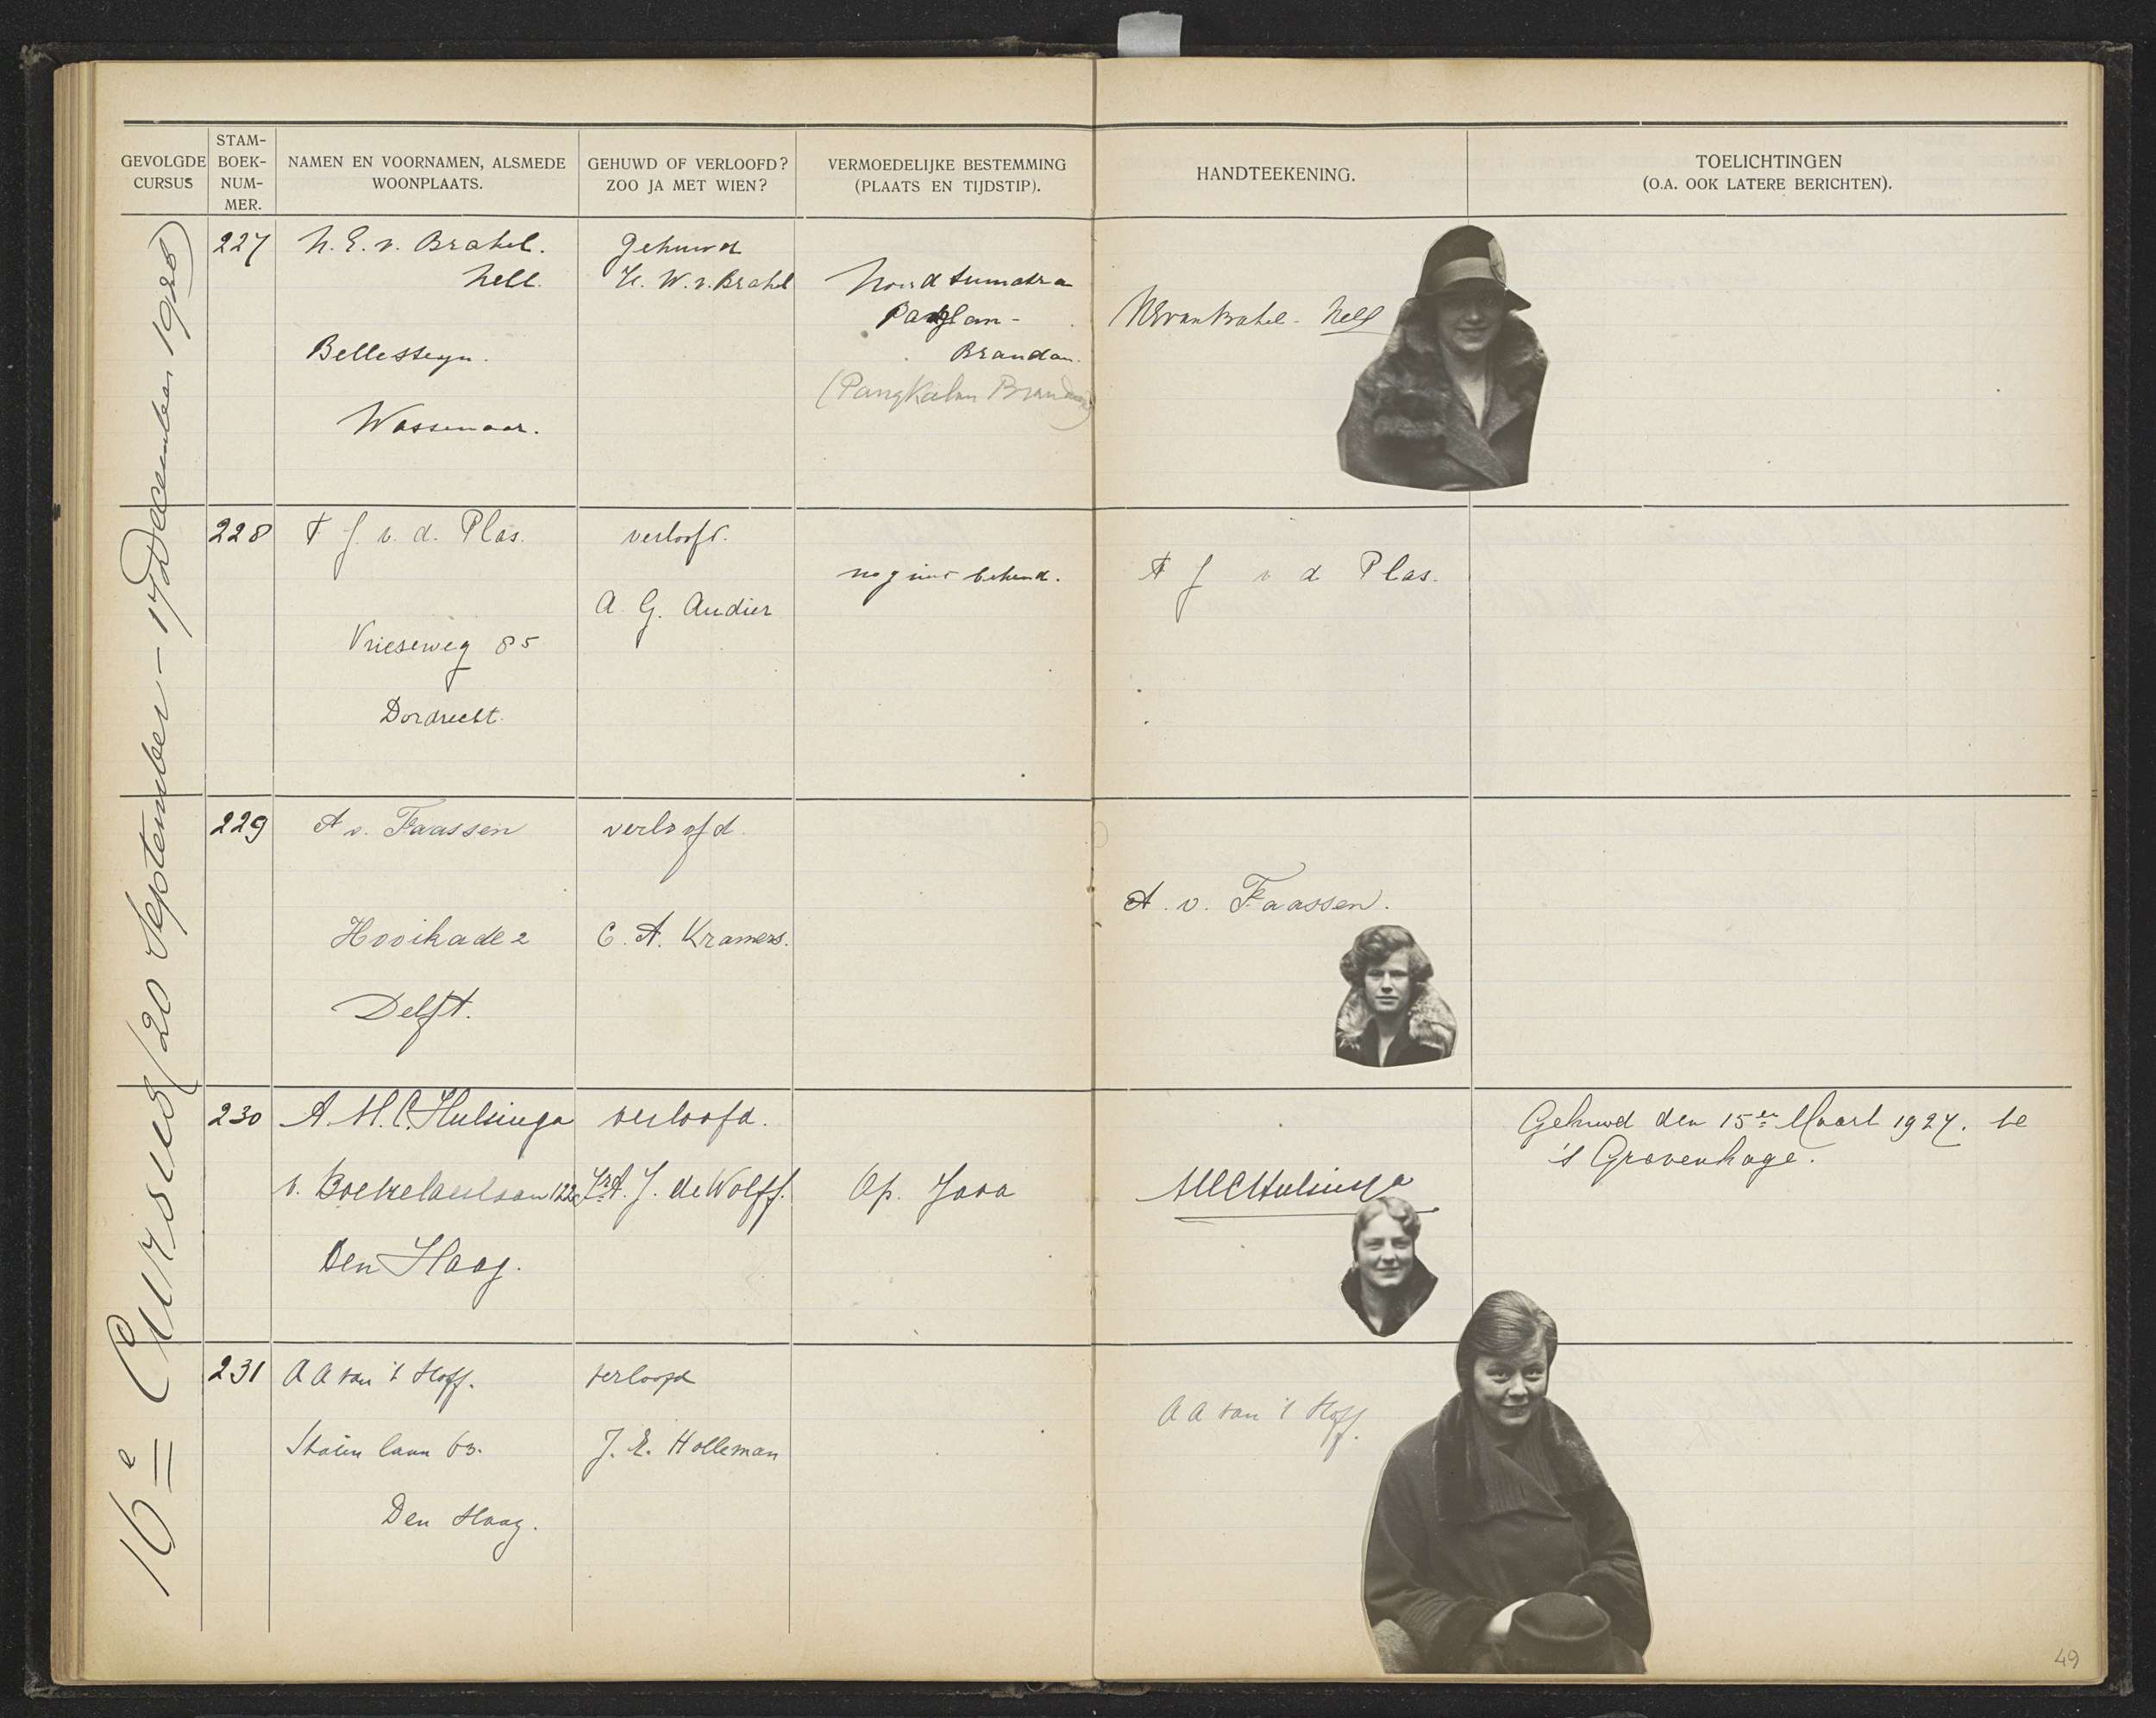 GEVOLGDE
CURSUS
STAM-
BOEK-
NUM-
MER.
NAMEN EN VOORNAMEN, ALSMEDE
WOONPLAATS.
GEHUWD OF VERLOOFD?
ZOO JA MET WIEN?
VERMOEDELIJKE BESTEMMING
(PLAATS EN TIJDSTIP).
HANDTEEKENING.
TOELICHTINGEN
(O.A. OOK LATERE BERICHTEN).
16e Cursus (20 September - 17 December 1926)
227
N. E. v. Brakel.
Nell.
Bellesteyn.
Wassenaar.
Gehuwd
H. W. v. Brakel
Noord Sumatra
Brandan.
(Pangkalan Brandan)
NEvanBrakel - Nell
228
F J. v. d. Plas.
Vrieseweg 85
Dordrecht.
verloofd.
A. G. Audier
nog niet bekend.
F J v d Plas.
229
A v. Faassen
Hooikade 2
Delft.
verloofd.
C. A. Kramers.
A. v. Faassen.
230
A. M. C. Hulsinga
v. Boetzelaerlaan 122
Den Haag.
verloofd.
J. de Wolff.
Op. Java
AMCHulsinga
Gehuwd den 15en Maart 1927. te
's Gravenhage.
231
A A van 't Hoff.
Stalen laan 63.
Den Haag.
verloofd
J. E. Holleman
A A van 't Hoff.
49